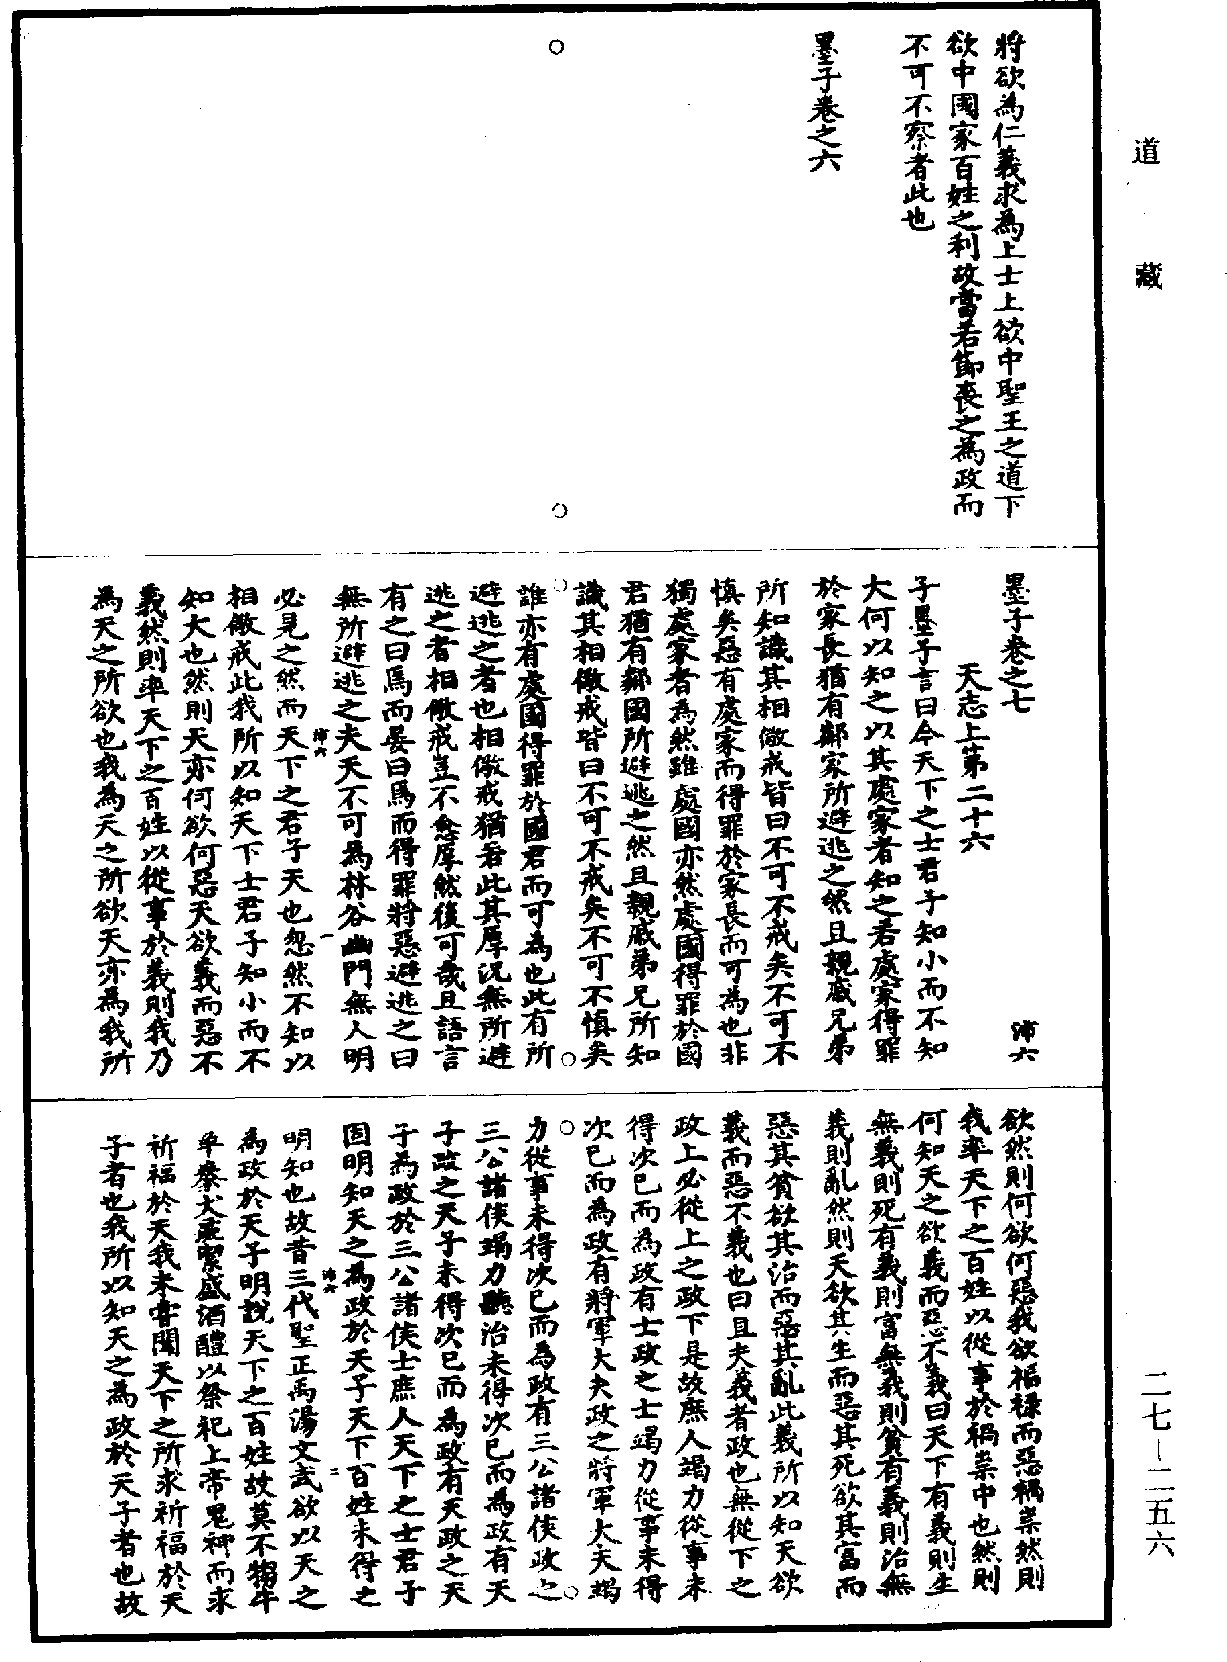 道藏
將欲為仁義求為上士上欲中聖王之道下
欲中國家百姓之利故當若節喪之為政而
不可不察者此也
墨子卷之六
墨子卷之七
沛六
天志上第二十六
子墨子言曰今天下之士君子知小而不知
大何以知之以其處家者知之若處家得罪
於家長猶有鄰家所避逃之然且親戚兄弟
所知識其相儆戒皆曰不可不戒矣不可不
慎矣惡有處家而得罪於家長而可為也非
獨處家者為然雖處國亦然處國得罪於國
君猶有鄰國所避逃之然且親戚弟兄所知
識其相儆戒皆曰不可不戒矣不可不慎矣
誰亦有處國得罪於國君而可為也此有所
避逃之者也相儆戒猶若此其厚況無所避
逃之者相儆戒豈不愈厚然後可哉且語言
有之曰焉而晏曰焉而得罪將惡避逃之曰
無所避逃之夫天不可為林谷幽門無人明
沛六
一
必見之然而天下之君子天也忽然不知以
相儆戒此我所以知天下士君子知小而不
知大也然則天亦何欲何惡天欲義而惡不
義然則率天下之百姓以從事於義則我乃
為天之所欲也我為天之所欲天亦為我所
欲然則何欲何惡我欲福祿而惡禍祟然則
我率天下之百姓以從事於禍祟中也然則
何知天之欲義而惡不義曰天下有義則生
無義則死有義則富無義則貧有義則治無
義則亂然則天欲其生而惡其死欲其富而
惡其貧欲其治而惡其亂此義所以知天欲
義而惡不義也曰且夫義者政也無從下之
政上必從上之政下是故庶人竭力從事未
得次己而為政有士政之士竭力從事未得
次己而為政有將軍大夫政之將軍大夫竭
力從事未得次己而為政有三公諸侯政之
三公諸侯竭力聽治未得次己而為政有天
子政之天子未得次己而為政有天政之天
子為政於三公諸侯士庶人天下之士君子
固明知天之為政於天子天下百姓未得之
沛六
二
明知也故昔三代聖王禹湯文武欲以天之
為政於天子明說天下之百姓故莫不犓牛
羊豢犬彘潔盛酒醴以祭祀上帝鬼神而求
祈福於天我未嘗聞天下之所求祈福於天
子者也我所以知天之為政於天子者也故
二七—二五六